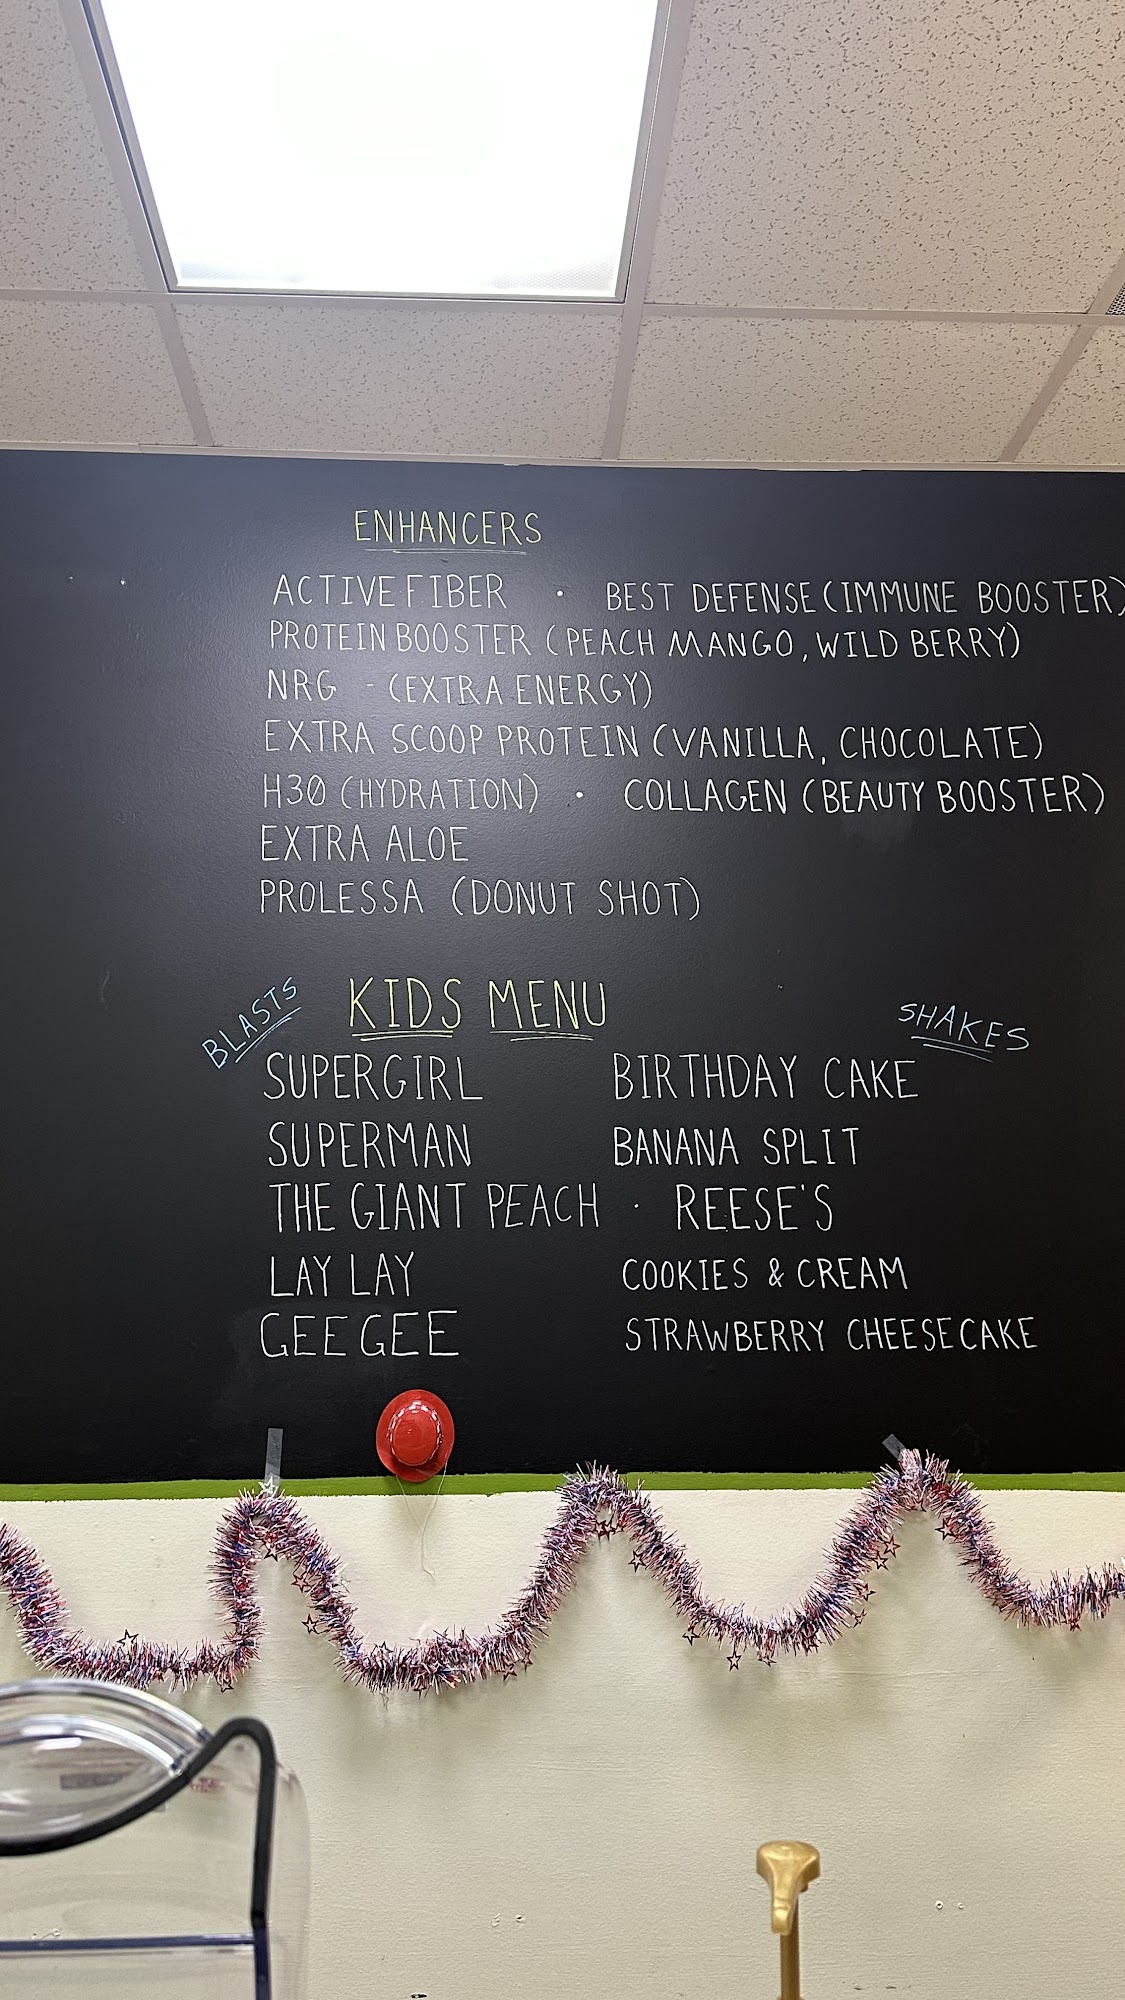 ENHANCERS
ACTIVE FIBER • BEST DEFENSE (IMMUNE BOOSTER)
PROTEIN BOOSTER (PEACH MANGO, WILD BERRY)
NRG - (EXTRA ENERGY)
EXTRA SCOOP PROTEIN (VANILLA, CHOCOLATE)
H30 (HYDRATION) • COLLAGEN (BEAUTY BOOSTER)
EXTRA ALOE
PROLESSA (DONUT SHOT)
KIDS MENU
BLASTS SHAKES
SUPERGIRL BIRTHDAY CAKE
SUPERMAN BANANA SPLIT
THE GIANT PEACH • REESE'S
LAY LAY COOKIES & CREAM
GEE GEE STRAWBERRY CHEESECAKE